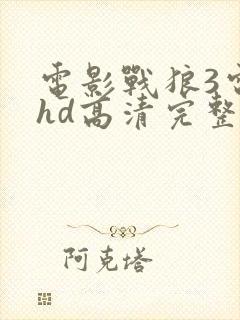 電影戰狼3電
hd高清完整
阿克塔